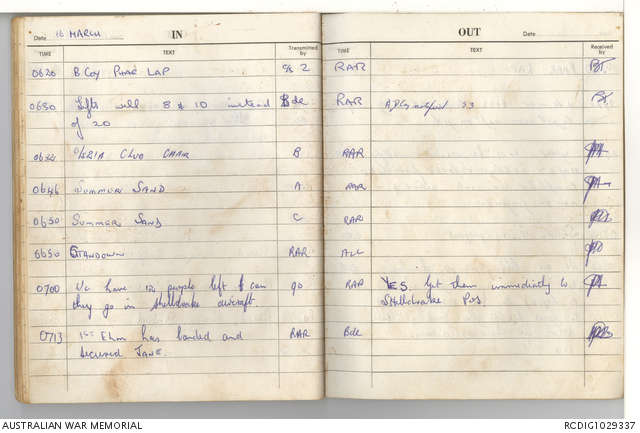 Date 16 MARCH IN
TIME TEXT Transmitted by
OUT Date
TIME TEXT Received by
0620 B Coy PHAR LAP C/S 2 RAR BT
0630 Lifts will 8 & 10 instead Bde RAR A, D Coy notified 53 BT
of 20
0632 CLUB B RAR
0646 SUMMER SAND A RAR
0650 SUMMER SAND C RAR
0650 STANDOWN RAR ALL
0700 We have 12 people left & can 90 RAR YES. Get them immediately to
they go in sheldrake aircraft. Sheldrake Pos
0713 1st Elm has landed and RAR Bde
secured JANE.
AUSTRALIAN WAR MEMORIAL RCDIG1029337